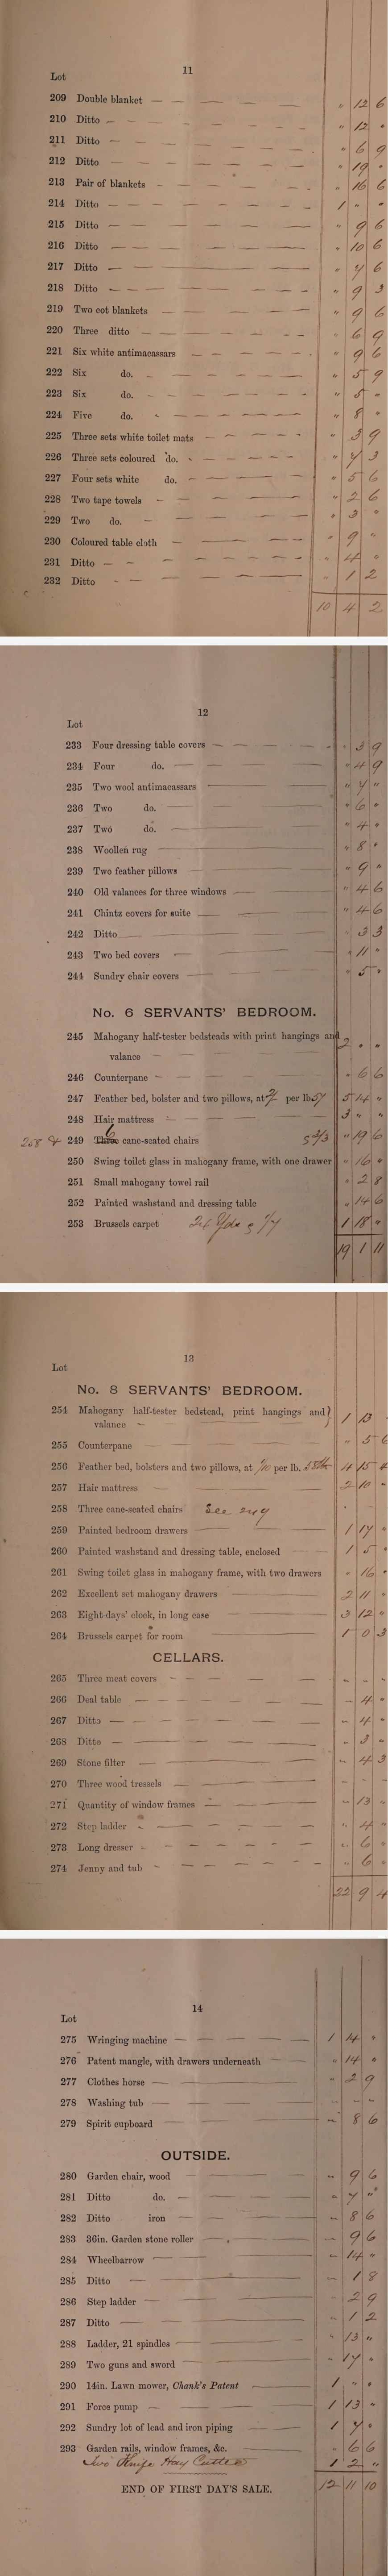 11
Lot
209 Double blanket — " 12 6
210 Ditto — " 12 "
211 Ditto — " 6 9
212 Ditto — " 19 "
213 Pair of blankets — " 16 6
214 Ditto — 1 " "
215 Ditto — " 9 6
216 Ditto — " 10 6
217 Ditto — " 7 6
218 Ditto — " 9 3
219 Two cot blankets — " 9 6
220 Three ditto — " 6 9
221 Six white antimacassars — " 9 6
222 Six do. — " 5 9
223 Six do. — " 5 "
224 Five do. — " 8 "
225 Three sets white toilet mats — " 3 9
226 Three sets coloured do. — " 7 3
227 Four sets white do. — " 5 6
228 Two tape towels — " 2 6
229 Two do. — " 3 "
230 Coloured table cloth — " 9 "
231 Ditto — " 4 "
232 Ditto — " 1 2
10 4 2
12
Lot
233 Four dressing table covers — " 3 9
234 Four do. — " 4 9
235 Two wool antimacassars — " 7 "
236 Two do. — " 6 "
237 Two do. — " 4 "
238 Woollen rug — " 8 "
239 Two feather pillows — " 9 "
240 Old valances for three windows — " 4 6
241 Chintz covers for suite — " 4 6
242 Ditto — " 3 3
243 Two bed covers — " 11 "
244 Sundry chair covers — " 5 "
No. 6 SERVANTS' BEDROOM.
245 Mahogany half-tester bedsteads with print hangings and
valance — 2 " "
246 Counterpane — " 6 6
247 Feather bed, bolster and two pillows, at 2/ per lb. 57 5 14 "
248 Hair mattress — 3 " "
258 & 249 Three 6 cane-seated chairs 3/3 " 19 6
250 Swing toilet glass in mahogany frame, with one drawer " 16 "
251 Small mahogany towel rail " 2 8
252 Painted washstand and dressing table " 14 6
253 Brussels carpet 24 Yds @ 1/7 1 18 "
19 1 11
13
Lot
No. 8 SERVANTS' BEDROOM.
254 Mahogany half-tester bedstead, print hangings and }
valance — 1 13 "
255 Counterpane — " 5 6
256 Feather bed, bolsters and two pillows, at 1/10 per lb. 4 15
257 Hair mattress — 2 10 "
258 Three cane-seated chairs See 249
259 Painted bedroom drawers — 1 17 "
260 Painted washstand and dressing table, enclosed — 1 5 "
261 Swing toilet glass in mahogany frame, with two drawers " 16 "
262 Excellent set mahogany drawers — 2 11 "
263 Eight-days' clock, in long case — 3 12 "
264 Brussels carpet for room — 1 0 3
CELLARS.
265 Three meat covers — - - -
266 Deal table — - 4 "
267 Ditto — - 4 "
268 Ditto — - 3 "
269 Stone filter — - 4 3
270 Three wood tressels — - - -
271 Quantity of window frames — - 13 "
272 Step ladder — " 4 "
273 Long dresser — " 6 "
274 Jenny and tub — " 6 "
22 9 4
14
Lot
275 Wringing machine — 1 14 "
276 Patent mangle, with drawers underneath — " 14 "
277 Clothes horse — " 2 9
278 Washing tub — - - -
279 Spirit cupboard — " 8 6
OUTSIDE.
280 Garden chair, wood — - 9 6
281 Ditto do. — - 7 "
282 Ditto iron — - 8 6
283 36in. Garden stone roller — - 9 6
284 Wheelbarrow — - 14 "
285 Ditto — - 1 8
286 Step ladder — - 2 9
287 Ditto — - 1 2
288 Ladder, 21 spindles — - 13 "
289 Two guns and sword — - 17 "
290 14in. Lawn mower, Chank's Patent — 1 " "
291 Force pump — 1 13 "
292 Sundry lot of lead and iron piping — 1 7 "
293 Garden rails, window frames, &c. — " 6 6
Two Knife Hay Cutter 1 2 "
END OF FIRST DAY'S SALE. 12 11 10